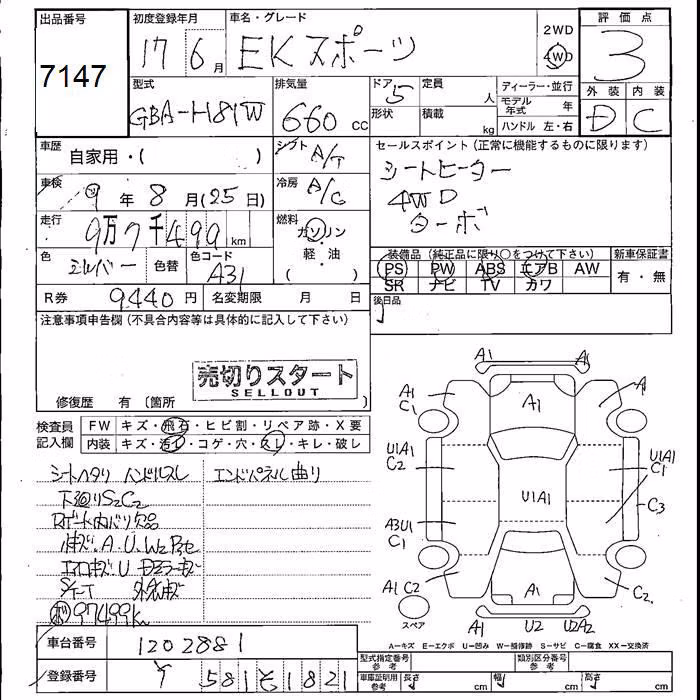 出品番号 初度登録年月 車名・グレード 評価点
7147 17 6月 EKスポーツ 2WD 4WD 3
型式 排気量 ドア 5 定員 人 ディーラー・並行 外装 内装
GBA-H81W 660 cc 形状 積載 kg モデル年式 年 D C
ハンドル 左・右
車歴 自家用・( ) シフト A/T セールスポイント(正常に機能するものに限ります)
車検 9年 8月(25日) 冷房 A/C シートヒーター
4WD
走行 9万7千499km 燃料 ガソリン・軽・油 ( ) ターボ
色 シルバー 色替 色コード A31 装備品(純正品に限り○をつけて下さい) 新車保証書
PS PW ABS エアB AW 有・無
SR ナビ TV カワ
R券 9440円 名変期限 月 日 後日品
注意事項申告欄(不具合内容等は具体的に記入して下さい)
売切りスタート
SELLOUT
修復歴 有 〔箇所 〕
検査員記入欄 FW キズ・飛石・ヒビ割・リペア跡・X要
内装 キズ・汚れ・コゲ・穴・スレ・キレ・破し
シートヘタリ ハンドルスレ エンドパネル曲り
下廻りS2C2
Rゲート内バリ欠品
エアロキズ.U ドアミラーキズ
97499k
A1 A1
A1 C1 A1 A
U1A1 C2 U1A1 U1A1 C1
C3
A3U1 C1
A1 C2 A1 C2
スペア A1 U2 U2A2
A=キズ E=エクボ U=凹み W=補修跡 S=サビ C=腐食 XX=交換済
車台番号 1202881
登録番号 581 そ 1821
型式指定番号 参考 類別区分番号 参考
車庫証明用 参考 長さ cm 幅 cm 高さ cm